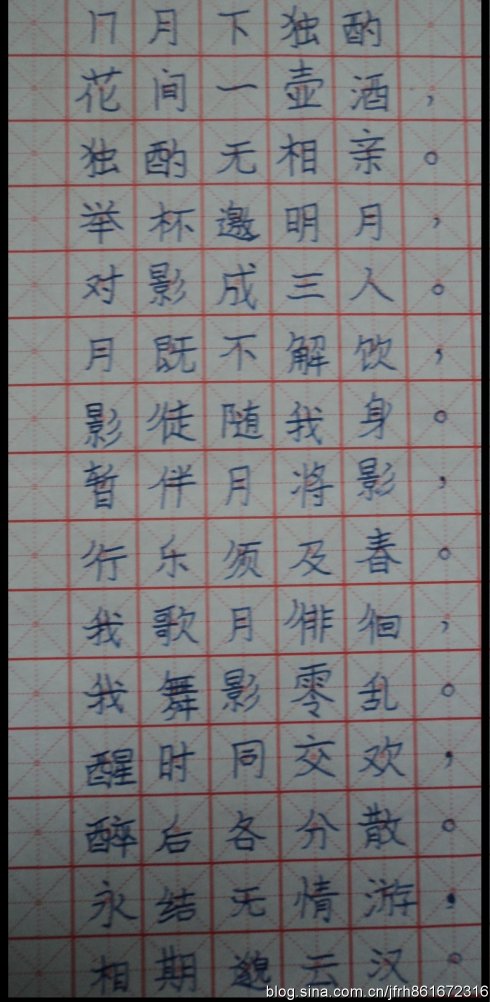 17月下独酌
花间一壶酒，
独酌无相亲。
举杯邀明月，
对影成三人。
月既不解饮，
影徒随我身。
暂伴月将影，
行乐须及春。
我歌月徘徊，
我舞影零乱。
醒时同交欢，
醉后各分散。
永结无情游，
相期邈云汉。
blog.sina.com.cn/jfrh861672316